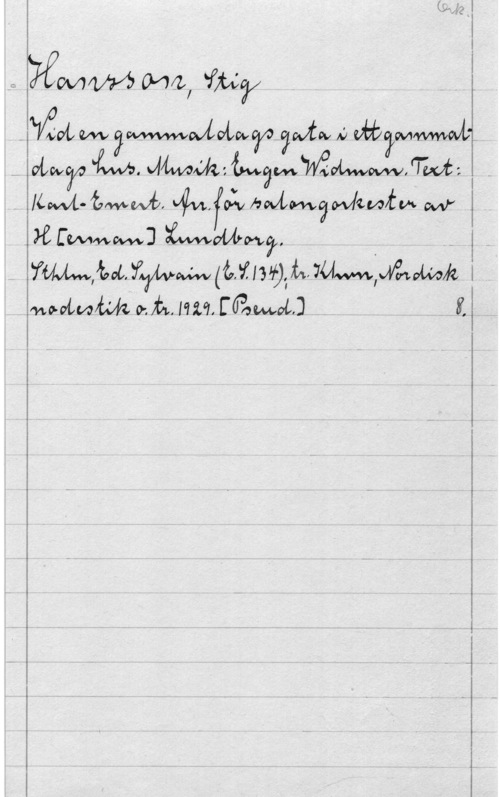 Ork.
Hansson, Stig
Vid en gammaldags gata i ett gammal-
dags hus. Musik: Eugen Widman. Text:
Karl-Emert. Arr. för salongorkester av
H[erman] Lundborg.
Sthlm, Ed. Sylvain (E.S. 134); tr. Khvn, Nordisk
nodestik o. tr. 1929. [Pseud.] 8.